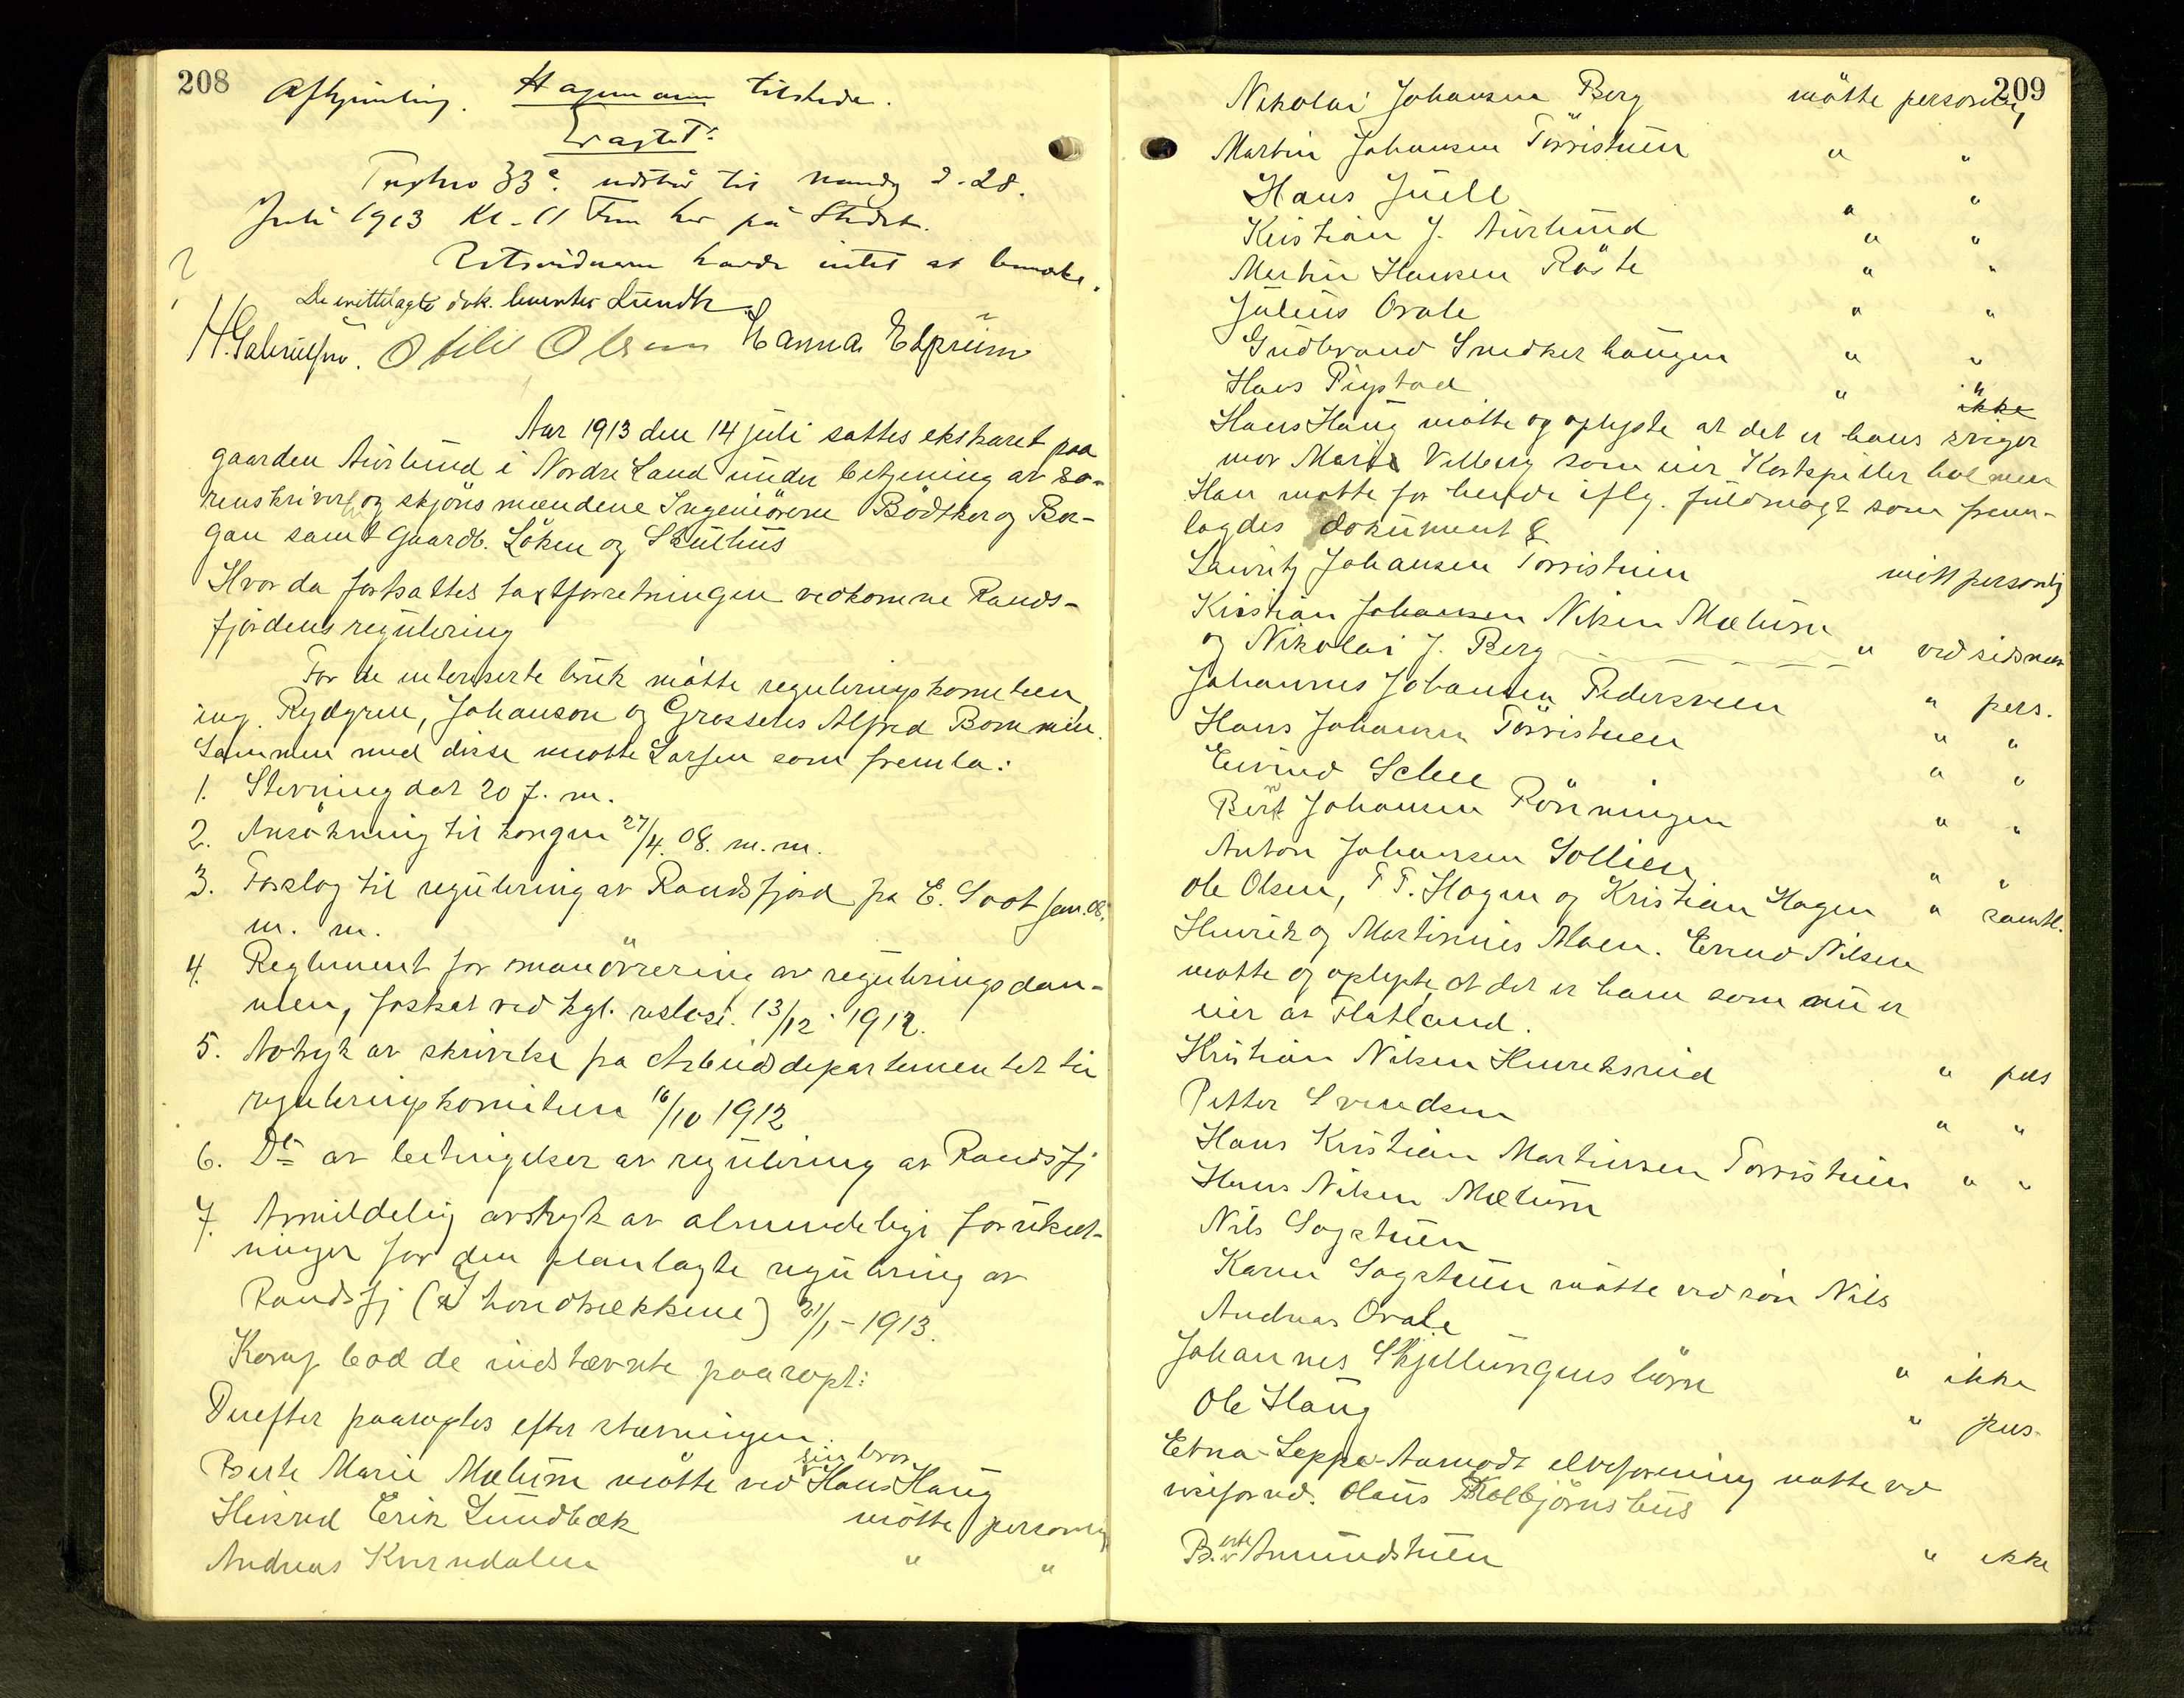 208
Hagemann tilstede.
Eragtet:
33e. udstår til d. 28.
Juli 1913 Kl. 11 Fm her på Stedet.
Retsvidnerne havde intet at bemærke.
De dok. Lundh
H. Gabrielsen. Otilie Olsen Hanna Elsrüm
Aar 1913 den 14 juli sattes ekstraret paa
gaarden Aürlünd i Nordre Land ünder betjening av so-
renskriver og skjönsmændene Ingeniörerne Bödtker og Ber-
gan samt Gaardb. Löken og Sküthüs
Hvor da fortsattes taxtforretningen vedkomne Rands-
fjordens regülering
For de interesserte brük mötte reguleringskomiteen,
ing. Rydgren, Johanson og Grosseres Alfred Bommen.
Sammen med disse motte Larsen som fremla:
1. Stevning dat 20 f. m.
2. Ansökning til kongen 27/4 08. m. m.
3. Forslag til regülering av Randsfjord fra E. Soot jan. 08.
m. m.
4. Reglement for manövrering av reguleringsdam-
men, fastsat ved kgl. resl. 13/12 1912.
5. Avtryk av skrivelse fra Arbeidsdepartementet til
reguleringskomiteen 16/10 1912
6. Do av betingelser av regülering av Randsfj
7. Avtryk av almindelige forütsæt-
ninger for den planlagte regülering av
Randsfj (I hovedtrækkene) 21/1-1913.
Komp bad de indstævnte paaropt:
Derefter paaroptes efter stævningen.
sin bror
Berte Marie Mælüm mötte ved Hans Haüg
Erik Lündbæk mötte personlig
Andreas Kverndalen " "
209
Nikolai Johansen Berg mötte personlig
Martin Johansen Törristüen " "
Hans Jüell " "
Kristian J. Aürlünd " "
Martin Hansen Röste " "
Jülius Ovale " "
Güdbrand Snedkerhaügen " "
Hans " ikke "
Hans Haüg mötte og oplyste at det er hans sviger
mor Marie Velberg som eier
Han motte for hende iflg. füldmagt som frem-
lagdes dokument 8
Lauritz Johansen Torristüen mött personlig
Kristian Johansen Nilsen Mælüm
og Nikolai J. Berg " ved sidsnev
Johannes Johansen Pedersveen " pers.
Hans Johansen Törristuen " "
Eivind Schee " "
Bernt Johansen Rönningen " "
Anton Johansen Sollien " "
Ole Olsen, T. T. Hagen og Kristian Hagen " samtl.
Henrik og Martinius Moen. Eivind Nilsen
motte og oplyste at det er ham som nü er
eier av Flatland.
Kristian Nilsen Henriksrüd " pers
Petter Svendsen " "
Hans Kristian Martinsen Torristüen " "
Hans Nilsen Mælüm
Nils Sagstüen
Karen Sagstüen mötte ved sön Nils
Andreas Ovale
Johannes Skjellüngens börn " ikke
Ole Haüg " pers.
Etna-Leppa-Aamodt elveforening motte ved
viseformd. Olaüs Kolbjörnshüs
Bernt Amündstüen " ikke